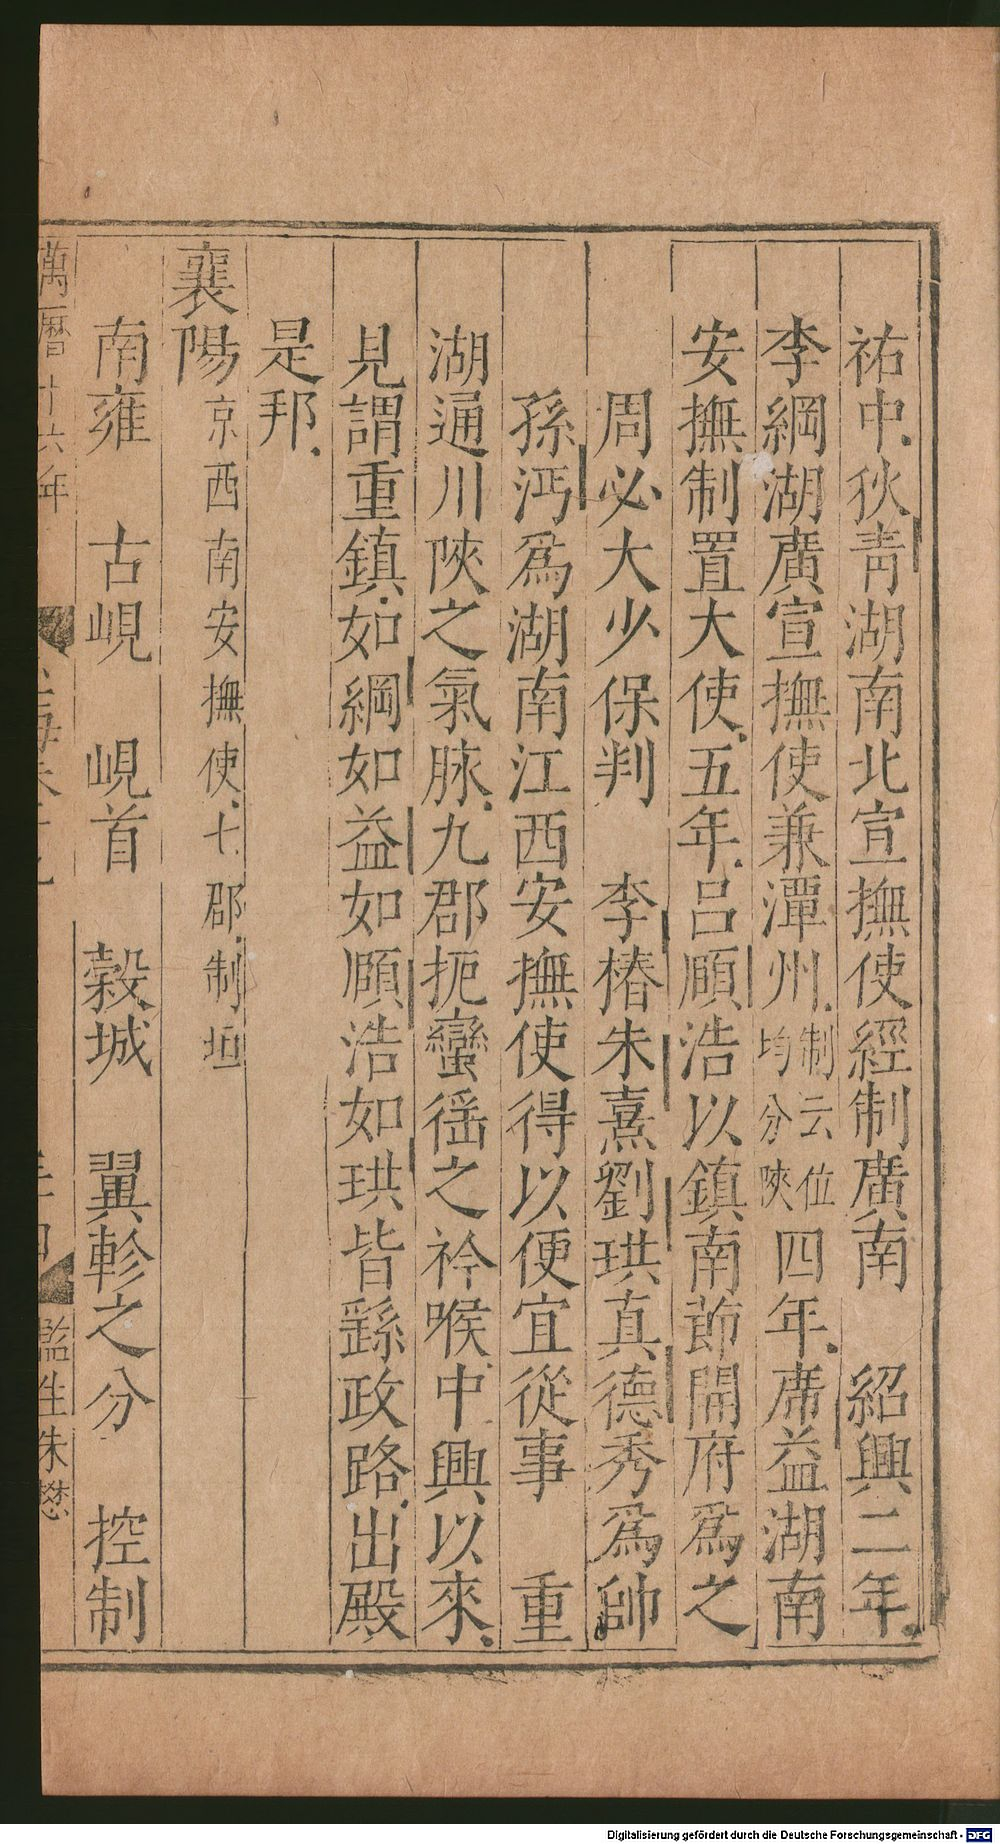 祐中狄青湖南北宣撫使經制廣南　紹興二年
李綱湖廣宣撫使兼潭州制云位均分陜四年席益湖南
安撫制置大使五年呂頤浩以鎮南節開府爲之
周必大少保判　李椿朱熹劉珙真德秀爲帥
孫沔爲湖南江西安撫使得以便宜從事　重
湖通川陜之氣脉九郡扼蠻徭之衿喉中興以來
見謂重鎮如綱如益如頤浩如珙皆繇政路出殿
是邦
襄陽京西南安撫使七郡制垣
南雍　古峴　峴首　穀城　翼軫之分　控制
萬曆十六年
監生朱懋
Digitalisierung gefördert durch die Deutsche Forschungsgemeinschaft - DFG